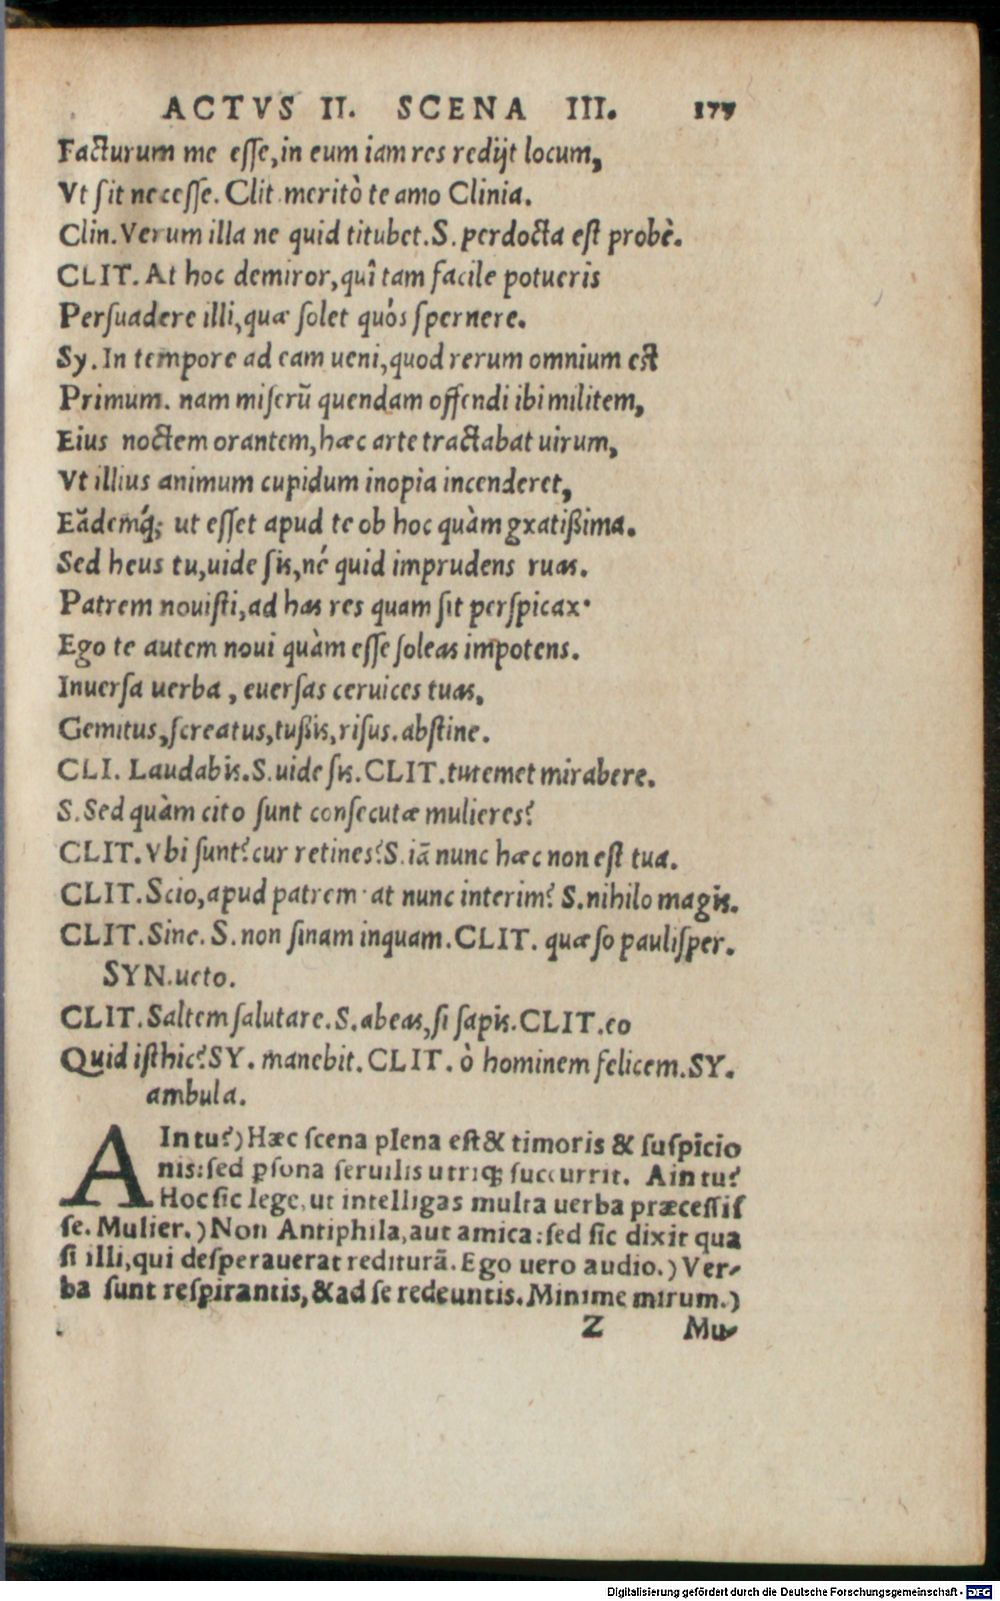 ACTVS II. SCENA III. 177
Facturum me esse, in eum iam res redijt locum,
Vt sit necesse. Clit. meritò te amo Clinia.
Clin. Verum illa ne quid titubet. S. perdocta est probè.
CLIT. At hoc demiror, quî tam facile potueris
Persuadere illi, quæ solet quos spernere.
Sy. In tempore ad eam ueni, quod rerum omnium est
Primum. nam miserũ quendam offendi ibi militem,
Eius noctem orantem, hæc arte tractabat uirum,
Vt illius animum cupidum inopia incenderet,
Eãdemq́; ut esset apud te ob hoc quàm gxatißima.
Sed heus tu, uide sis, né quid imprudens ruas.
Patrem nouisti, ad has res quam sit perspicax·
Ego te autem noui quàm esse soleas impotens.
Inuersa uerba, euersas ceruices tuas,
Gemitus, screatus, tußis, risus. abstine.
CLI. Laudabis. S. uide sis. CLIT. tutemet mirabere.
S. Sed quàm cito sunt consecutæ mulieres?
CLIT. Vbi sunt? cur retines? S. iã nunc hæc non est tua.
CLIT. Scio, apud patrem· at nunc interim? S. nihilo magis.
CLIT. Sine. S. non sinam inquam. CLIT. quæso paulisper.
SYN. ueto.
CLIT. Saltem salutare. S. abeas, si sapis. CLIT. eo
Quid isthic? SY. manebit. CLIT. ò hominem felicem. SY.
ambula.
AIn tu?) Hæc scena plena est & timoris & suspicio
nis: sed ꝑsona seruilis utriq; succurrit. Ain tu?
Hoc sic lege, ut intelligas multa uerba præcessis
se. Mulier.) Non Antiphila, aut amica: sed sic dixit qua
si illi, qui desperauerat redituрã. Ego uero audio.) Ver-
ba sunt respirantis, & ad se redeuntis. Minime mirum.)
Z Mu-
Digitalisierung gefördert durch die Deutsche Forschungsgemeinschaft - DFG